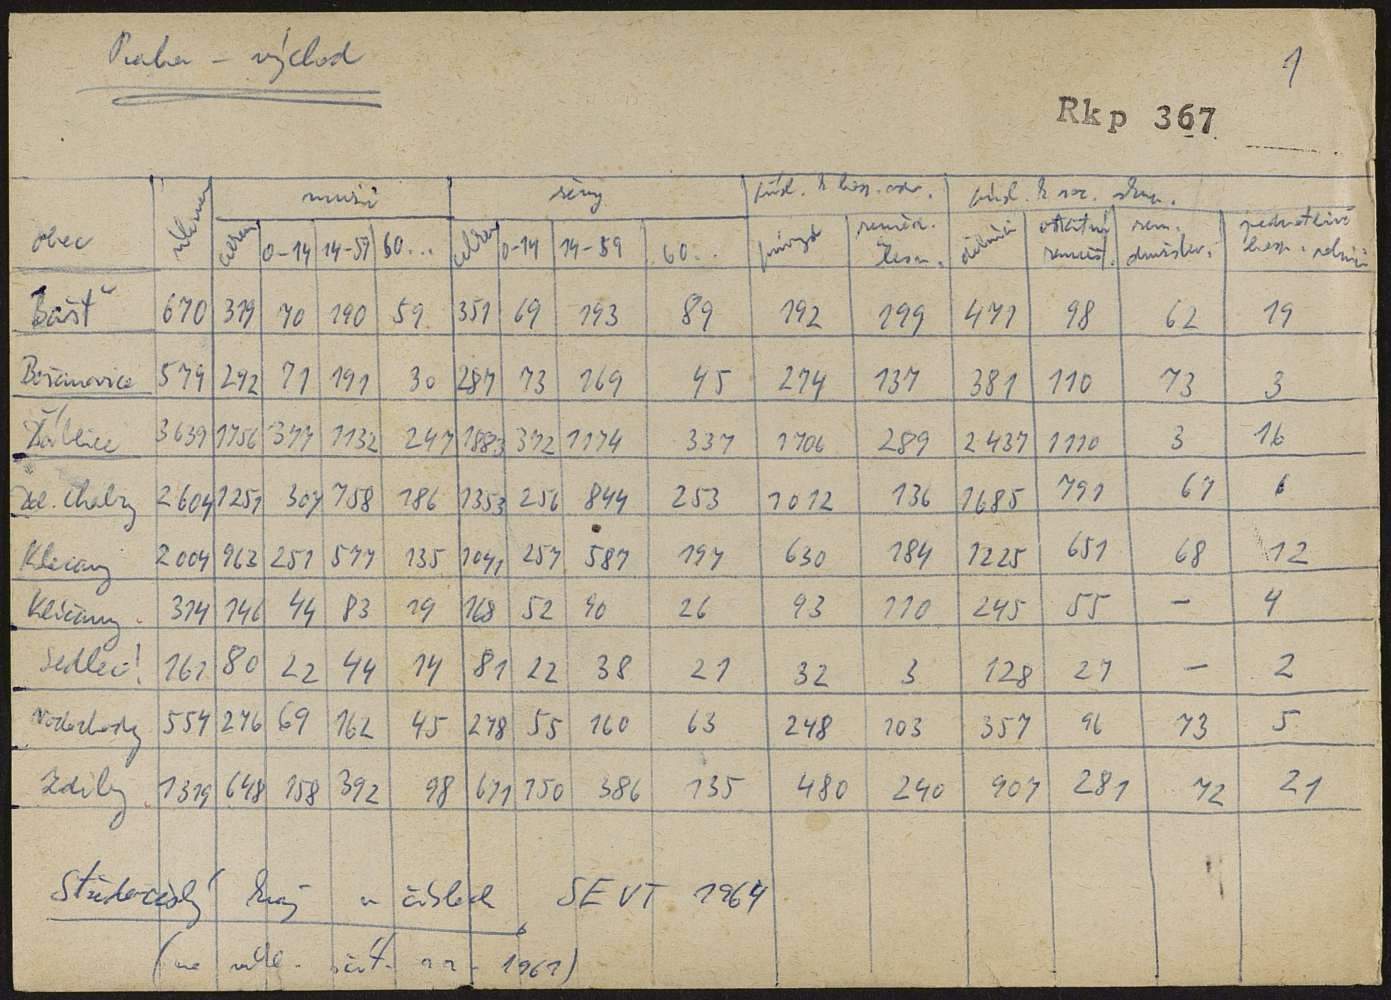 Praha – východ
1
Rkp 367
obec muži ženy přísl. k hosp. odv. přísl. k soc. skup.
celkem 0-14 14-59 60... celkem 0-14 14-59 60.. průmysl zeměd. lesn. dělníci ostatní zaměst. zem. družstev. jednotlivě hosp. roln.
Bašť 670 319 70 190 59 351 69 193 89 192 199 471 98 62 19
Bořanovice 579 292 71 191 30 287 73 169 45 274 137 381 110 73 3
Ďáblice 3639 1756 377 1132 247 1883 372 1174 337 1706 289 2437 1110 3 16
Dol. Chabry 2604 1251 307 758 186 1353 256 844 253 1012 136 1685 791 67 6
Klecany 2004 963 251 577 135 1041 257 587 197 630 184 1225 651 68 12
Klíčany 314 146 44 83 19 168 52 90 26 93 110 245 55 – 4
Sedlec! 161 80 22 44 14 81 22 38 21 32 3 128 27 – 2
Vodochody 554 276 69 162 45 278 55 160 63 248 103 357 96 73 5
Zdiby 1319 648 158 392 98 671 150 386 135 480 240 907 281 72 21
Středočeský kraj v číslech SEVT 1964
(na zákl. sčít. 1961)